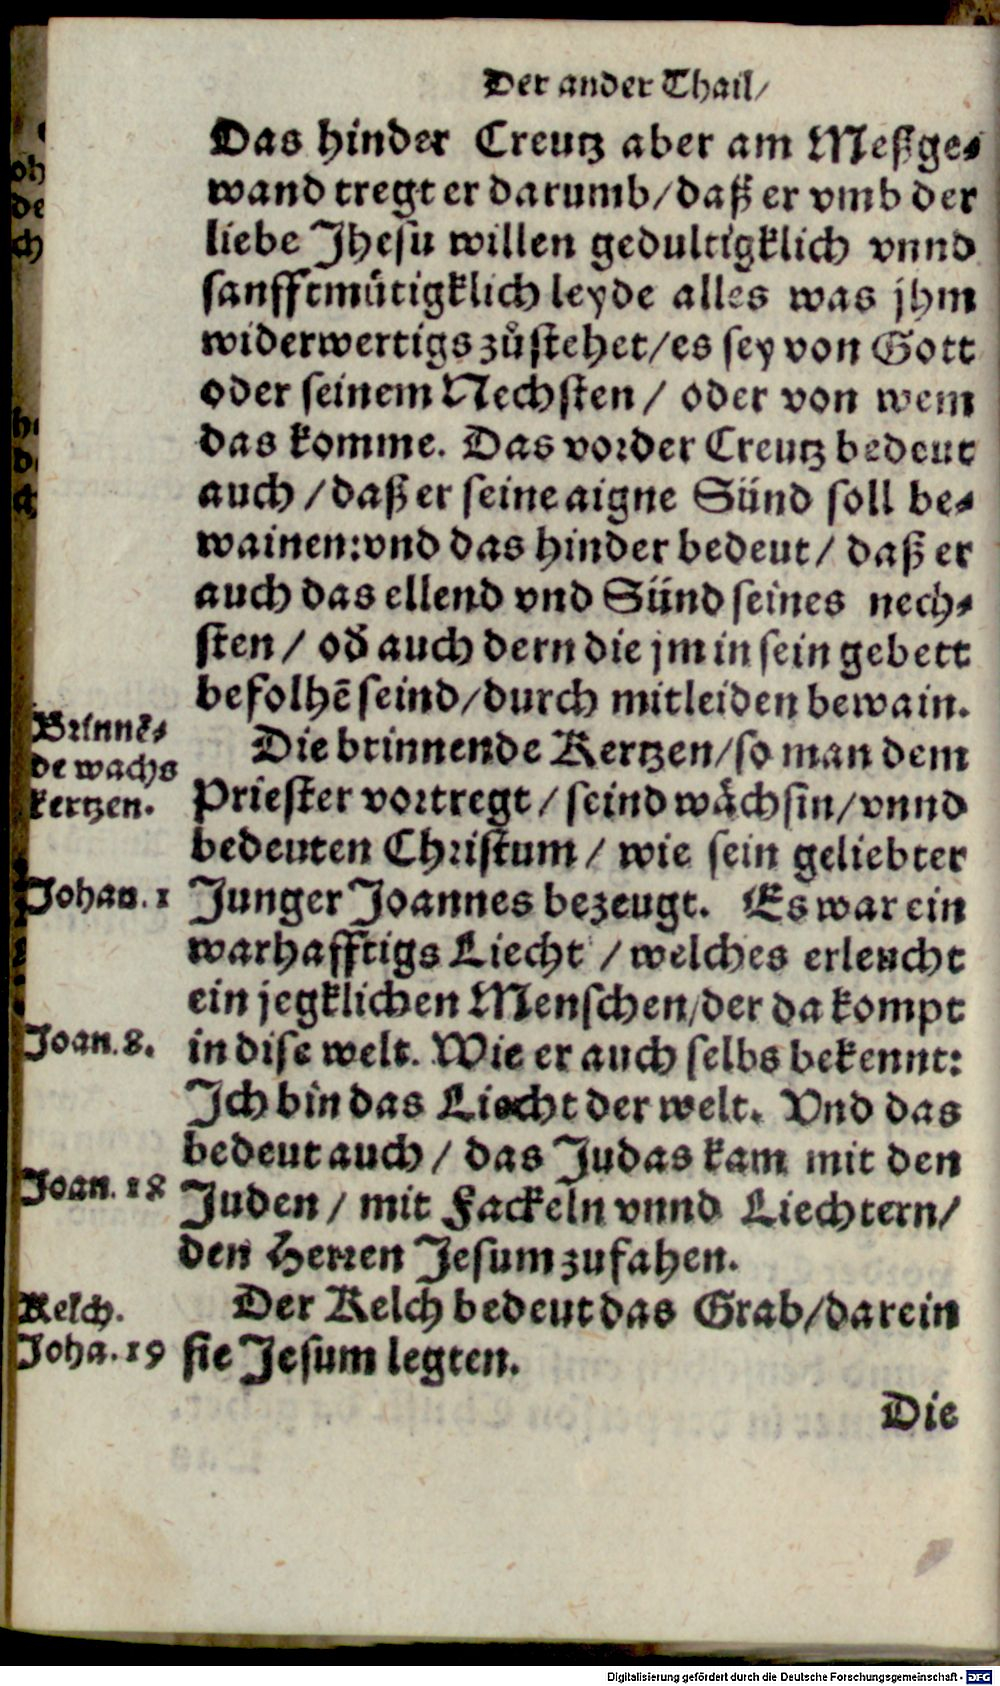 Der ander Thail/
Das hinder Creutz aber am Meßge⸗
wand tregt er darumb/daß er vmb der
liebe Jhesu willen gedultigklich vnnd
sanfftmütigklich leyde alles was jhm
widerwertigs zůstehet/es sey von Gott
oder seinem Nechsten / oder von wem
das komme. Das vorder Creutz bedeut
auch /daß er seine aigne Sünd soll be⸗
wainen:vnd das hinder bedeut/ daß er
auch das ellend vnd Sünd seines nech⸗
sten / oď auch dern die jm in sein gebett
befolhē seind/durch mitleiden bewain.
Brinnē⸗
de wachs
kertzen.
Die brinnende Kertzen/so man dem
Priester vortregt / seind wächsin/vnnd
bedeuten Christum / wie sein geliebter
Johan. 1
Junger Joannes bezeugt. Es war ein
warhafftigs Liecht / welches erleucht
ein jegklichen Menschen/der da kompt
Joan. 8.
in dise welt. Wie er auch selbs bekennt:
Ich bin das Liecht der welt. Vnd das
bedeut auch / das Judas kam mit den
Joan. 18
Juden / mit Fackeln vnnd Liechtern/
den Herren Jesum zufahen.
Kelch.
Der Kelch bedeut das Grab/darein
Joha. 19
sie Jesum legten.
Die
Digitalisierung gefördert durch die Deutsche Forschungsgemeinschaft - DFG